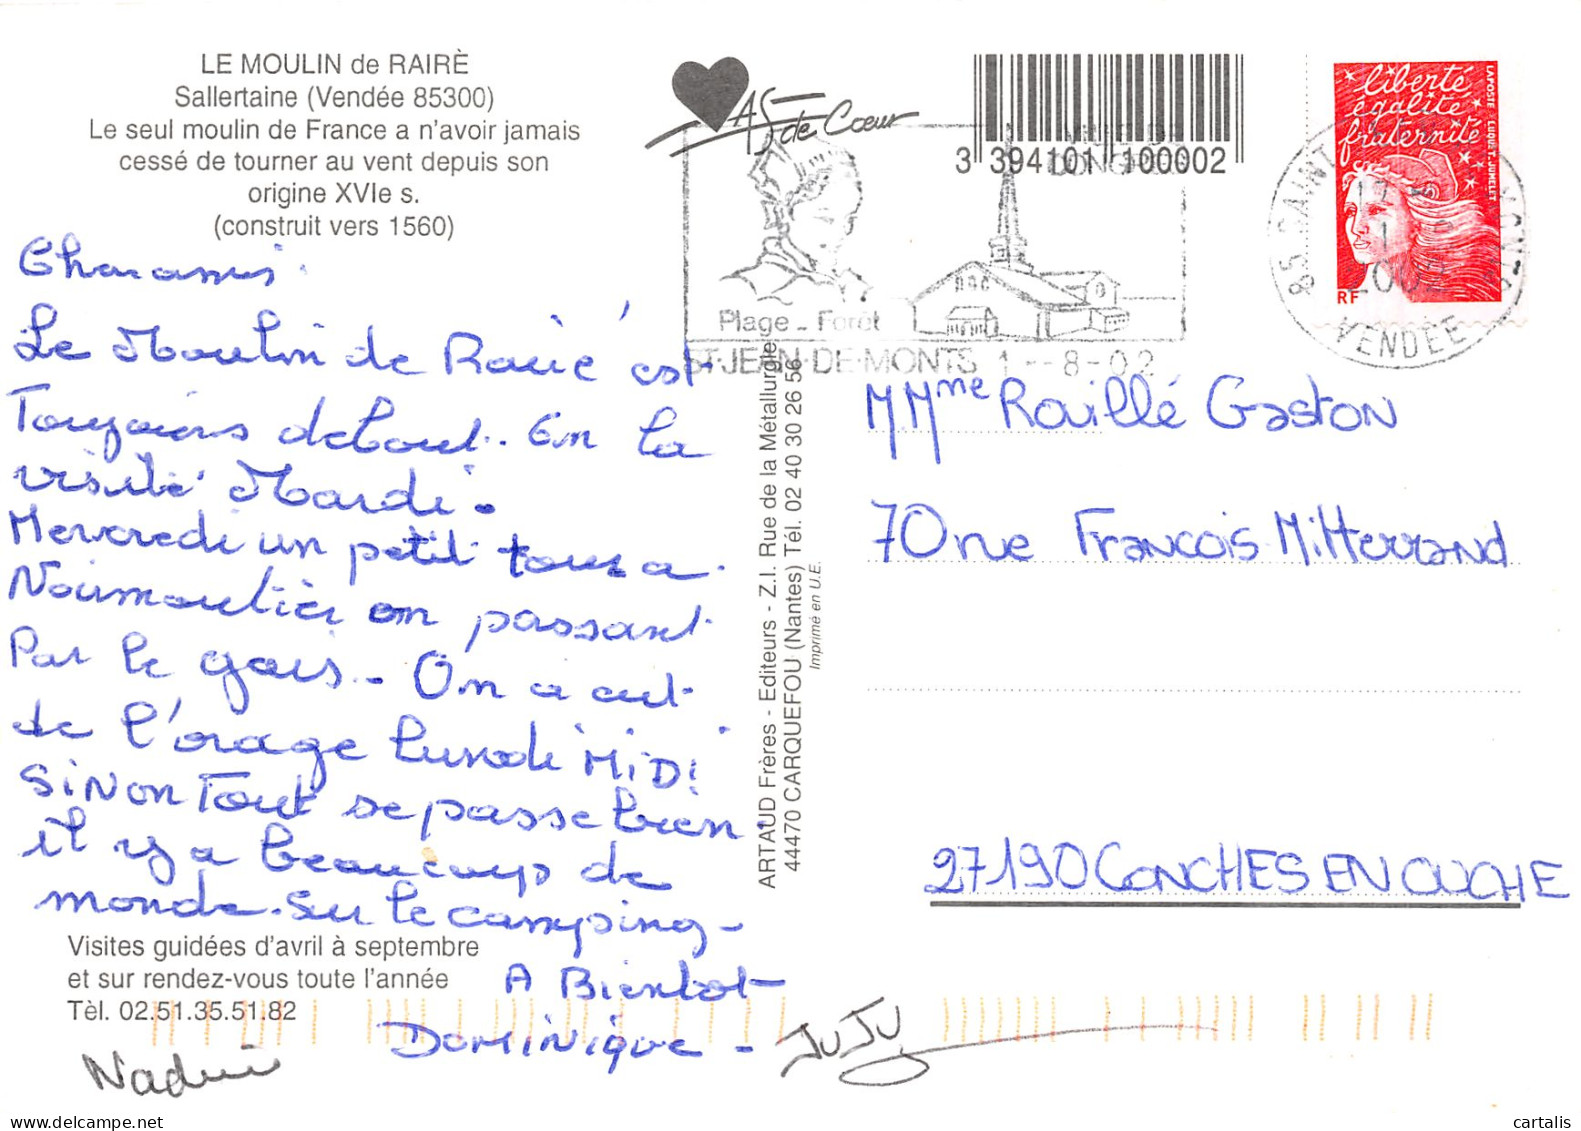 LE MOULIN de RAIRÈ
Sallertaine (Vendée 85300)
Le seul moulin de France a n'avoir jamais
cessé de tourner au vent depuis son
origine XVIe s.
(construit vers 1560)
Chers amis
Le Moulin de Rairé est
Toujours debout. En la
visité Mardi.
Mercredi un petit tour a
Noirmoutier en passant
Par le gois. On a eut
de l'orage lundi MiDi
SiNon Tout se passe bien.
il y a beaucoup de
monde. Sur le camping -
A Bientot
Dominique - JuJu
Nadine
Visites guidées d'avril à septembre
et sur rendez-vous toute l'année
Tèl. 02.51.35.51.82
AS de Coeur
3 394101 100002
Plage - Forêt
ST-JEAN-DE-MONTS 1 - 8 - 02
liberté
égalité
fraternité
LA POSTE LUQUET-JUMELET
RF
85 SAINT MONTS
VENDÉE
ARTAUD Frères - Editeurs - Z.I. Rue de la Métallurgie
44470 CARQUEFOU (Nantes) Tél. 02 40 30 26 56
Imprimé en U.E.
M Mme Rouillé Gaston
70 rue Francois Mitterrand
27190 CONCHES EN OUCHE
cartalis